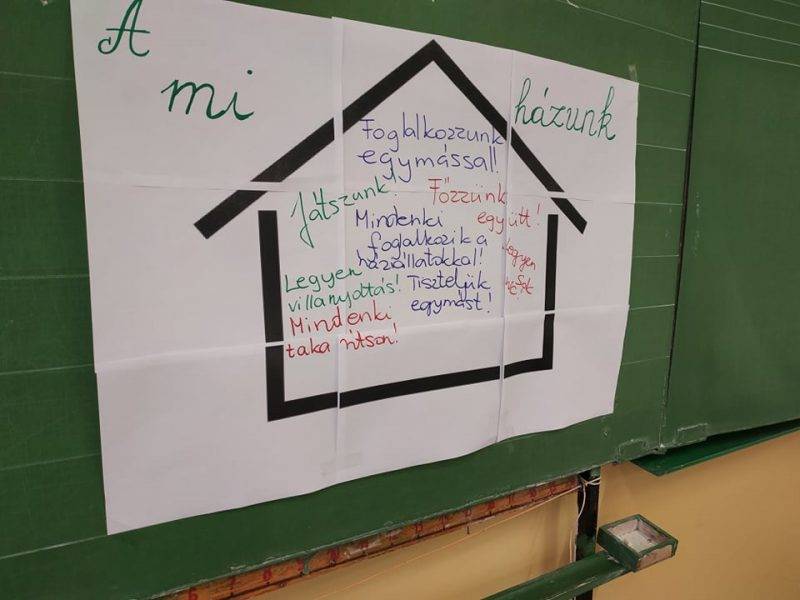 A
mi
házunk
Foglalkozzunk
egymással!
Játszunk!
Főzzünk
együtt!
Mindenki
foglalkozik a
háziállatokkal!
Legyen
villanyoltás!
Tiszteljük
egymást!
Legyen
Mindenki
takarítson!